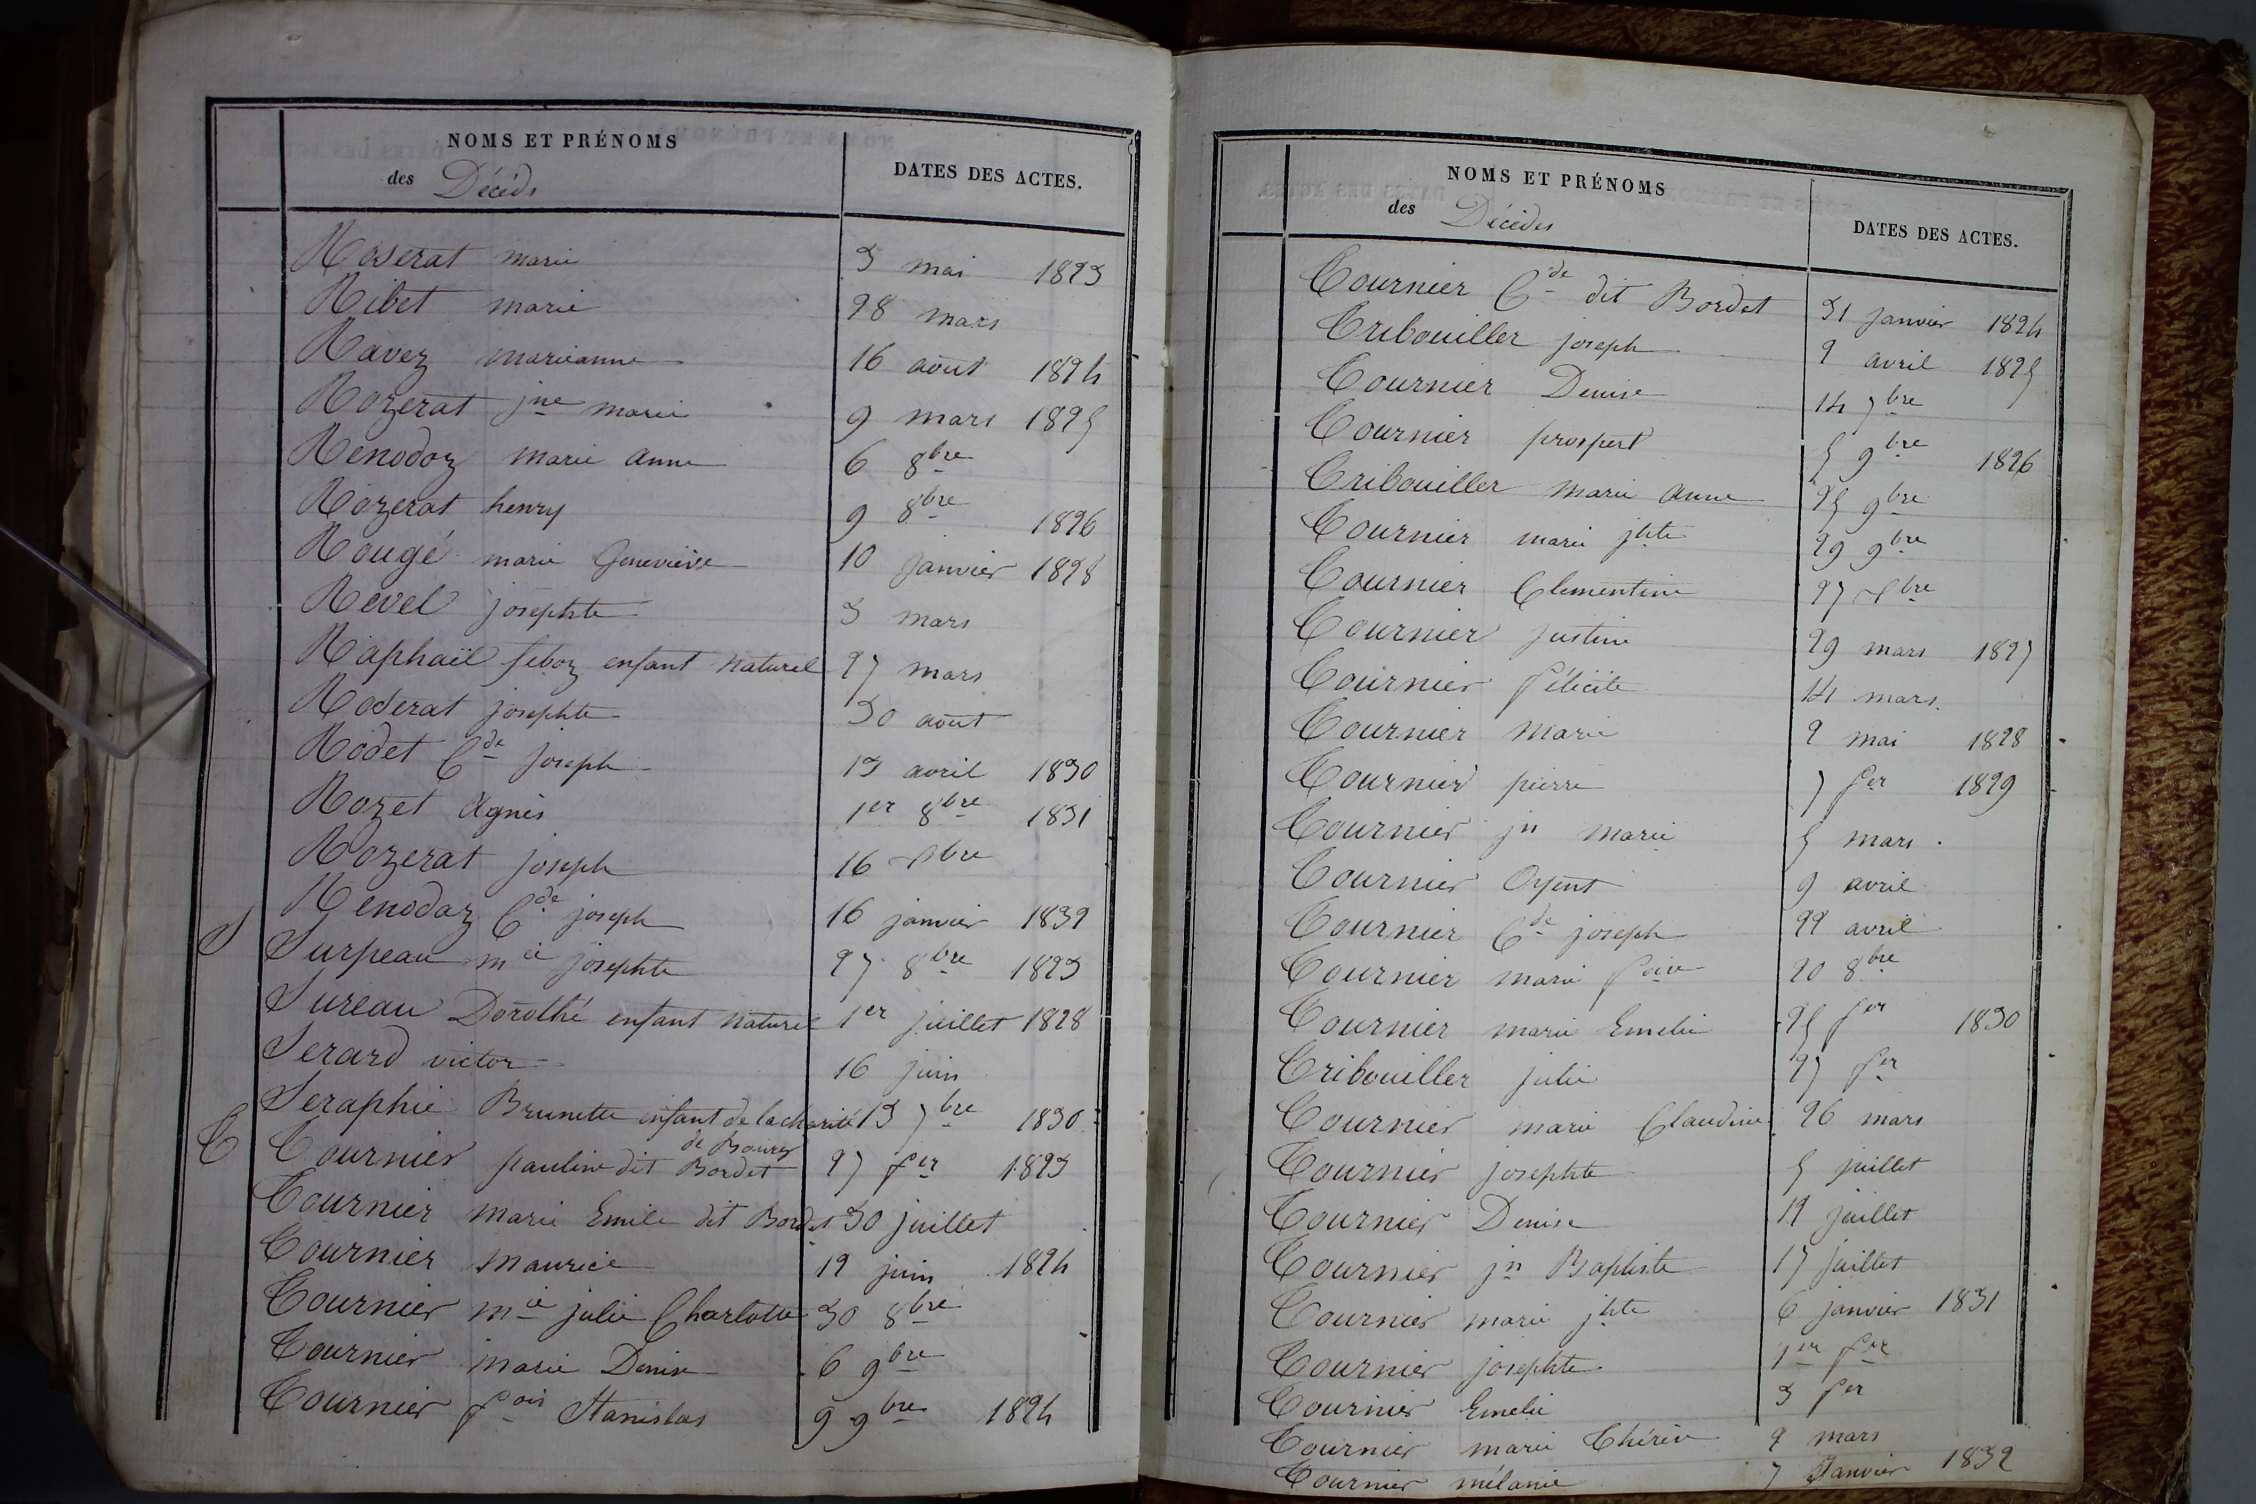 NOMS ET PRÉNOMS
des Décéds
DATES DES ACTES.
Roserat marie 3 mai 1823
Ribet marie 28 mars
Ravez marieanne 16 août 1824
Rozerat jne marie 9 mars 1825
Renodoz marie anne 6 8bre
Rozerat henry 9 8bre 1826
Rougé marie Geneviève 10 janvier 1828
Revel josephte 3 mars
Raphaël feboz enfant naturel 27 mars
Roserat josephte 30 août
Rodet Cde joseph 13 avril 1830
Rozet Agnès 1er 8bre 1831
Rozerat joseph 16 Xbre
Renodaz Cde joseph 16 janvier 1832
S Surpeau mie josephte 27 8bre 1823
Sureau Dorothé enfant naturel 1er juillet 1828
Serard victor 16 juin
Seraphie Brunette enfant de la charité 13 7bre 1830
de Bourg
T Tournier pauline dit Bordet 27 fer 1823
Tournier marie Emile dit Bordet 30 juillet
Tournier maurice 12 juin 1824
Tournier mie julie Charlotte 30 8bre
Tournier marie Denise 6 9bre
Tournier fois Stanislas 9 9bre 1824
NOMS ET PRÉNOMS
des Décédés
DATES DES ACTES.
Tournier Cde dit Bordet 31 janvier 1824
Tribouiller joseph 2 avril 1825
Tournier Denise 14 7bre
Tournier prospert 5 9bre 1826
Tribouiller marie anne 25 9bre
Tournier marie jhte 29 9bre
Tournier Clementine 27 Xbre
Tournier justine 29 mars 1827
Tournier félicite 14 mars
Tournier Marie 2 mai 1828
Tournier pierre 7 fer 1829
Tournier jn marie 5 mars
Tournier Oyent 9 avril
Tournier Cde joseph 22 avril
Tournier marie foise 20 8bre
Tournier marie Emelie 25 fer 1830
Tribouiller julie 27 fer
Tournier marie Claudine 26 mars
Tournier josephte 5 juillet
Tournier Denise 12 juillet
Tournier jn Baptiste 17 juillet
Tournier marie jhte 6 janvier 1831
Tournier josephte 1er fer
Tournier Emelie 3 fer
Tournier marie Thérèse 2 mars
Tournier mélanie 7 Janvier 1832